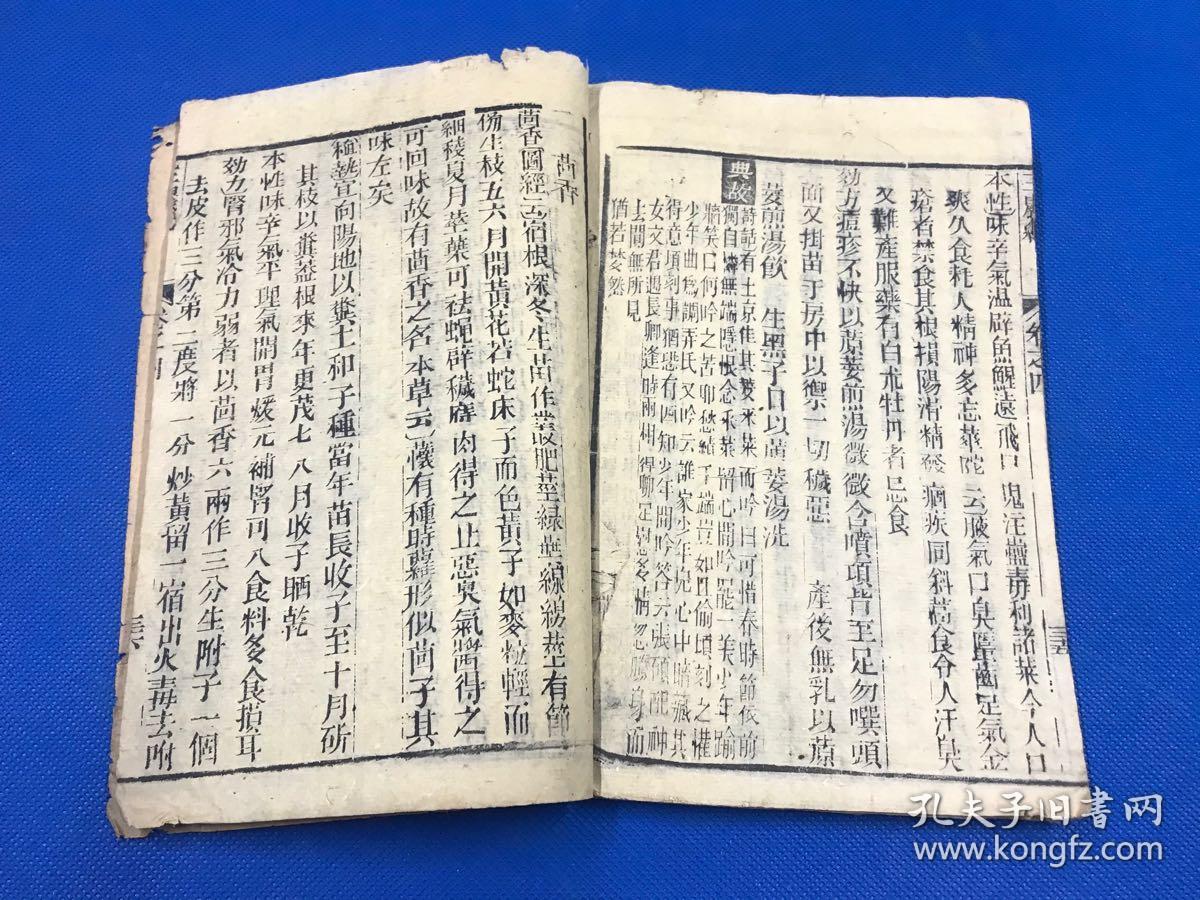 本性味辛氣温辟魚鯹遠飛尸鬼注蠱毒利諸菜令人口
爽久食耗人精神多忘華陀云腋氣口臭䘌齒足氣金
瘡者禁食其根損陽滑精發痼疾同斜蒿食令人汗臭
又難產服藥有白朮牡丹者忌食
効方痘疹不快以蒝荽煎湯微微含噴項背至足勿噀頭
面又掛苗于房中以禦一切穢惡 產後無乳以蒝
荽煎湯飲 生黑子日以蒝荽湯洗
典故
而吟曰可惜春時節依前
獨自無端
牆笑曰何吟之苦
少年曲為調弄氏又吟云誰家少年兒心中暗藏其
得意頃刻事猶恐有四知少年聞吟答云張碩配神
女文君遇長卿逢時兩相得聊足慰多情忽騰身而
去聞無所見
猶若夢然
卷之四
茴香
茴香圖經云宿根深冬生苗作叢肥莖綠葉線縷莖有節
傍生枝五六月開黃花若蛇床子而色黃子如麥粒輕而
細稜夏月莖葉可祛蠅辟穢㾗肉得之止惡臭氣醬得之
可回味故有茴香之名本草云懷有種時蘿形似茴子其
味左矣
種蓺宜向陽地以糞土和子種當年苗長收子至十月斫
其枝以糞蓋根來年更茂七八月收子晒乾
本性味辛氣平理氣開胃煖元補腎可入食料多食損耳
効方腎邪氣冷力弱者以茴香六兩作三分生附子一個
去皮作三分第一度將一分炒黃留一宿出火毒去附
孔夫子旧书网
www.kongfz.com